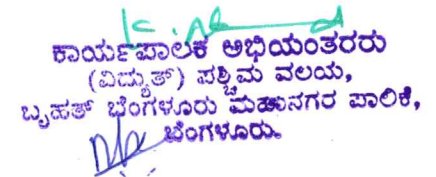 ಕಾರ್ಯಪಾಲಕ ಅಭಿಯಂತರರು
(ವಿದ್ಯುತ್) ಪಶ್ಚಿಮ ವಲಯ,
ಬೃಹತ್ ಬೆಂಗಳೂರು ಮಹಾನಗರ ಪಾಲಿಕೆ,
ಬೆಂಗಳೂರು.